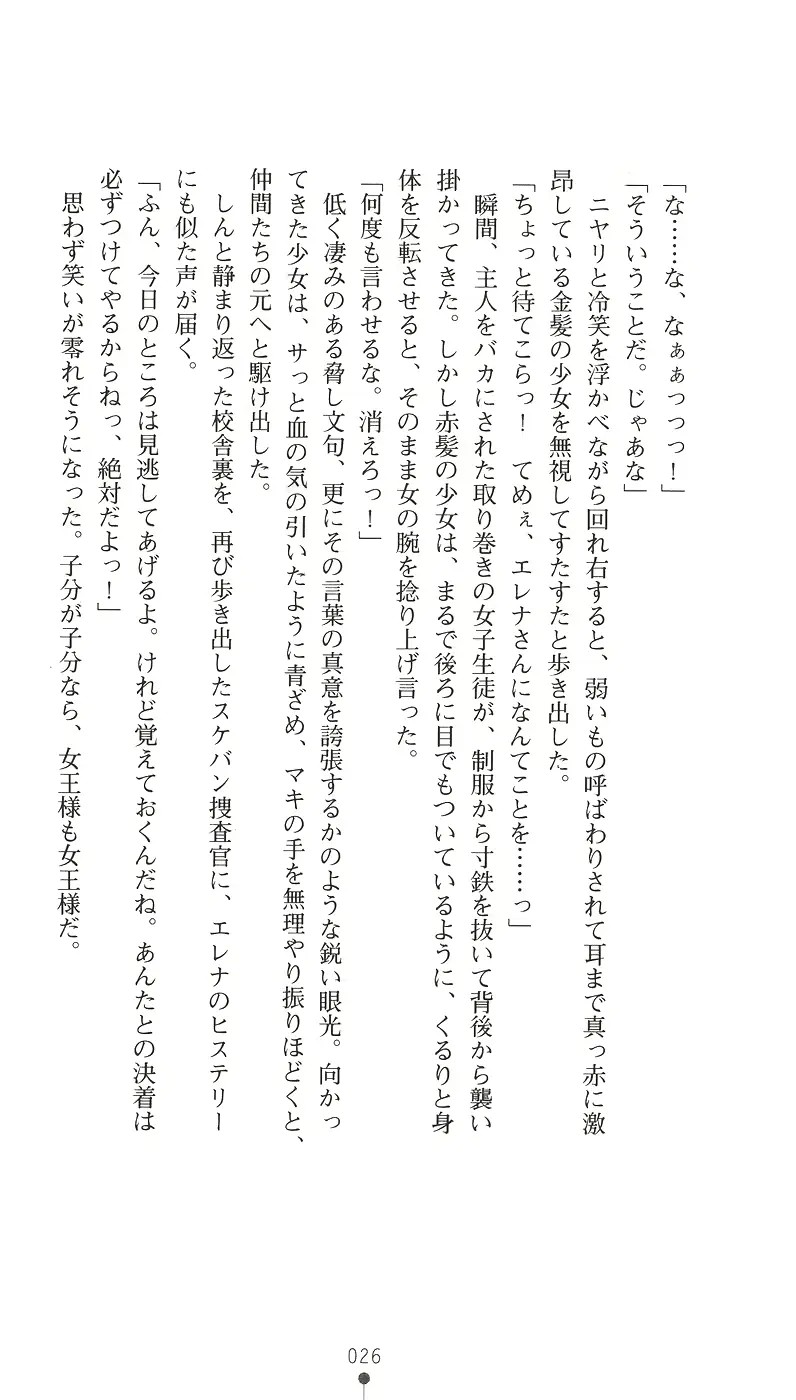 「な……な、なぁぁっっっ！」
「そういうことだ。じゃあな」
　ニヤリと冷笑を浮かべながら回れ右すると、弱いもの呼ばわりされて耳まで真っ赤に激
昂している金髪の少女を無視してすたすたと歩き出した。
「ちょっと待てこらっ！　てめぇ、エレナさんになんてことを……っ」
　瞬間、主人をバカにされた取り巻きの女子生徒が、制服から寸鉄を抜いて背後から襲い
掛かってきた。しかし赤髪の少女は、まるで後ろに目でもついているように、くるりと身
体を反転させると、そのまま女の腕を捻り上げ言った。
「何度も言わせるな。消えろっ！」
　低く凄みのある脅し文句、更にその言葉の真意を誇張するかのような鋭い眼光。向かっ
てきた少女は、サっと血の気の引いたように青ざめ、マキの手を無理やり振りほどくと、
仲間たちの元へと駆け出した。
　しんと静まり返った校舎裏を、再び歩き出したスケバン捜査官に、エレナのヒステリー
にも似た声が届く。
「ふん、今日のところは見逃してあげるよ。けれど覚えておくんだね。あんたとの決着は
必ずつけてやるからねっ、絶対だよっ！」
　思わず笑いが零れそうになった。子分が子分なら、女王様も女王様だ。
026